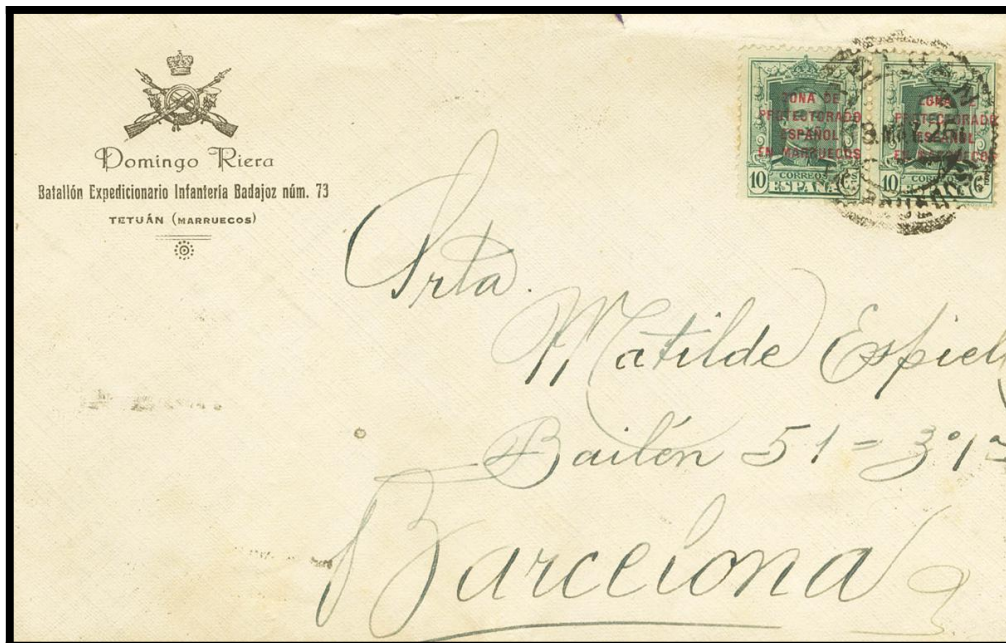 Domingo Riera
Batallón Expedicionario Infanteria Badajoz núm. 73
TETUÁN (MARRUECOS)
ZONA DE
PROTECTORADO
ESPAÑOL
EN MARRUECOS
10 CORREOS
ESPAÑA
ZONA DE
PROTECTORADO
ESPAÑOL
EN MARRUECOS
10 CORREOS
ESPAÑA
Srta.
Matilde Espiel
Bailén 51 = 3º 1
Barcelona